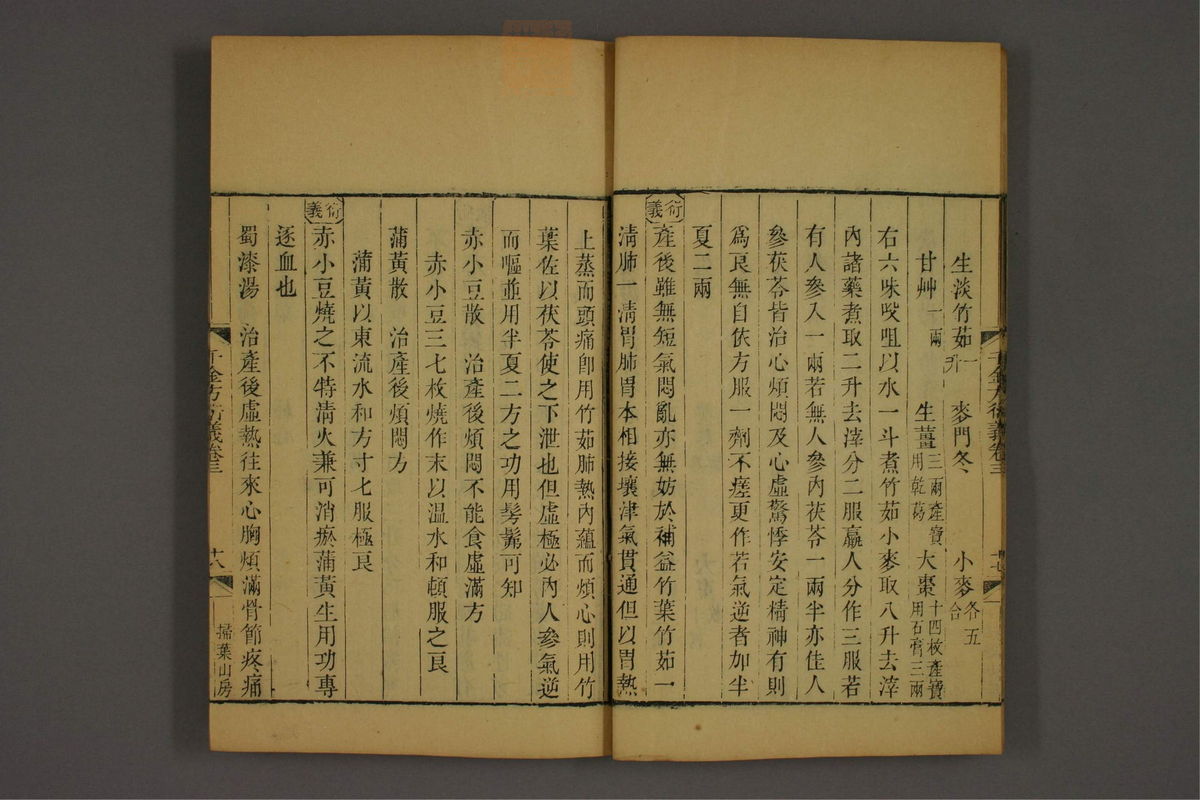 生淡竹茹一升 麥門冬 小麥各五合
甘艸一兩 生薑三兩產寶用乾葛 大棗十四枚產寶用石膏三兩
右六味㕮咀以水一斗煮竹茹小麥取八升去滓
內諸藥煮取二升去滓分二服羸人分作三服若
有人參入一兩若無人參內茯苓一兩半亦佳人
參茯苓皆治心煩悶及心虛驚悸安定精神有則
爲良無自依方服一劑不瘥更作若氣逆者加半
夏二兩
衍義
產後雖無短氣悶亂亦無妨於補益竹葉竹茹一
淸肺一淸胃肺胃本相接壤津氣貫通但以胃熱
千金方衍義卷三 十七
上蒸而頭痛卽用竹茹肺熱內蘊而煩心則用竹
葉佐以茯苓使之下泄也但虛極必內人參氣逆
而嘔並用半夏二方之功用髣髴可知
赤小豆散 治產後煩悶不能食虛滿方
赤小豆三七枚燒作末以温水和頓服之良
蒲黃散 治產後煩悶方
蒲黃以東流水和方寸匕服極良
衍義
赤小豆燒之不特淸火兼可消瘀蒲黃生用功專
逐血也
蜀漆湯 治產後虛熱往來心胸煩滿骨節疼痛
千金方衍義卷三 十八 掃葉山房